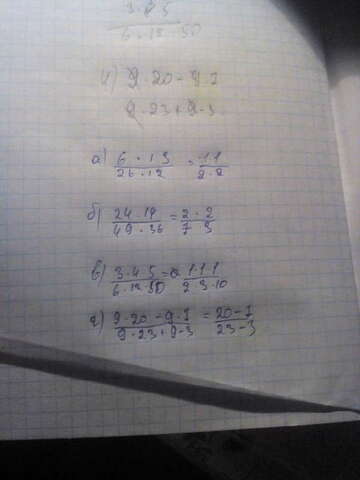 3·4 5
6·12·50
4) 9·20-9 7
9·23+9·3
а) 6·13 / 26·12 = 1 1 / 2·2
б) 24 14 / 49·36 = 2·2 / 7 3
в) 3·4 5 / 6·12 50 = 1·1·1 / 2 3·10
г) 9·20-9·7 / 9·23+9·3 = 20-7 / 23-3